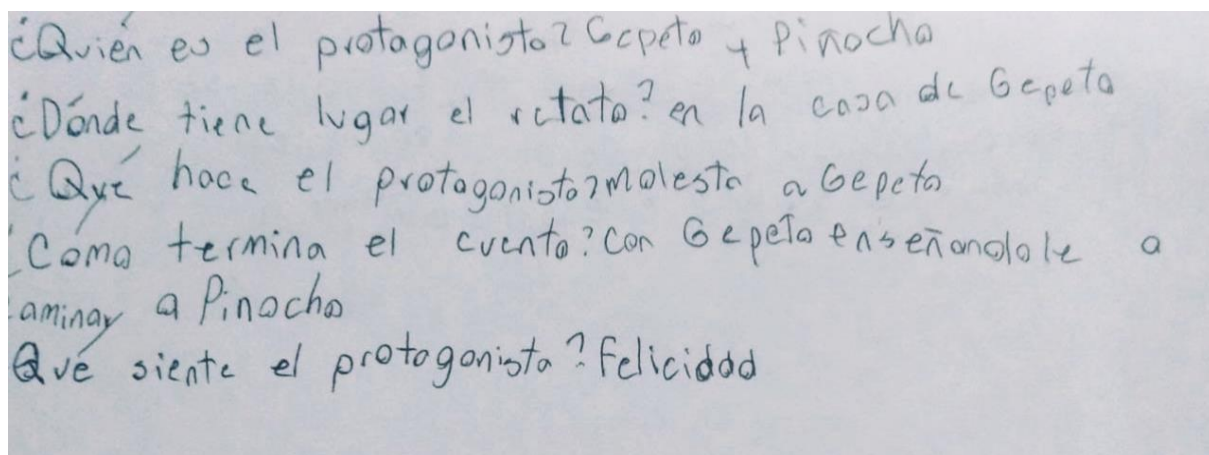 ¿Quién es el protagonista? Gepeto y Pinocho
¿Dónde tiene lugar el retato? en la casa de Gepeto
¿Qué hace el protagonista? molesta a Gepeto
¿Cómo termina el cuento? con Gepeto enseñandole a
caminar a Pinocho
Qué siente el protagonista? Felicidad